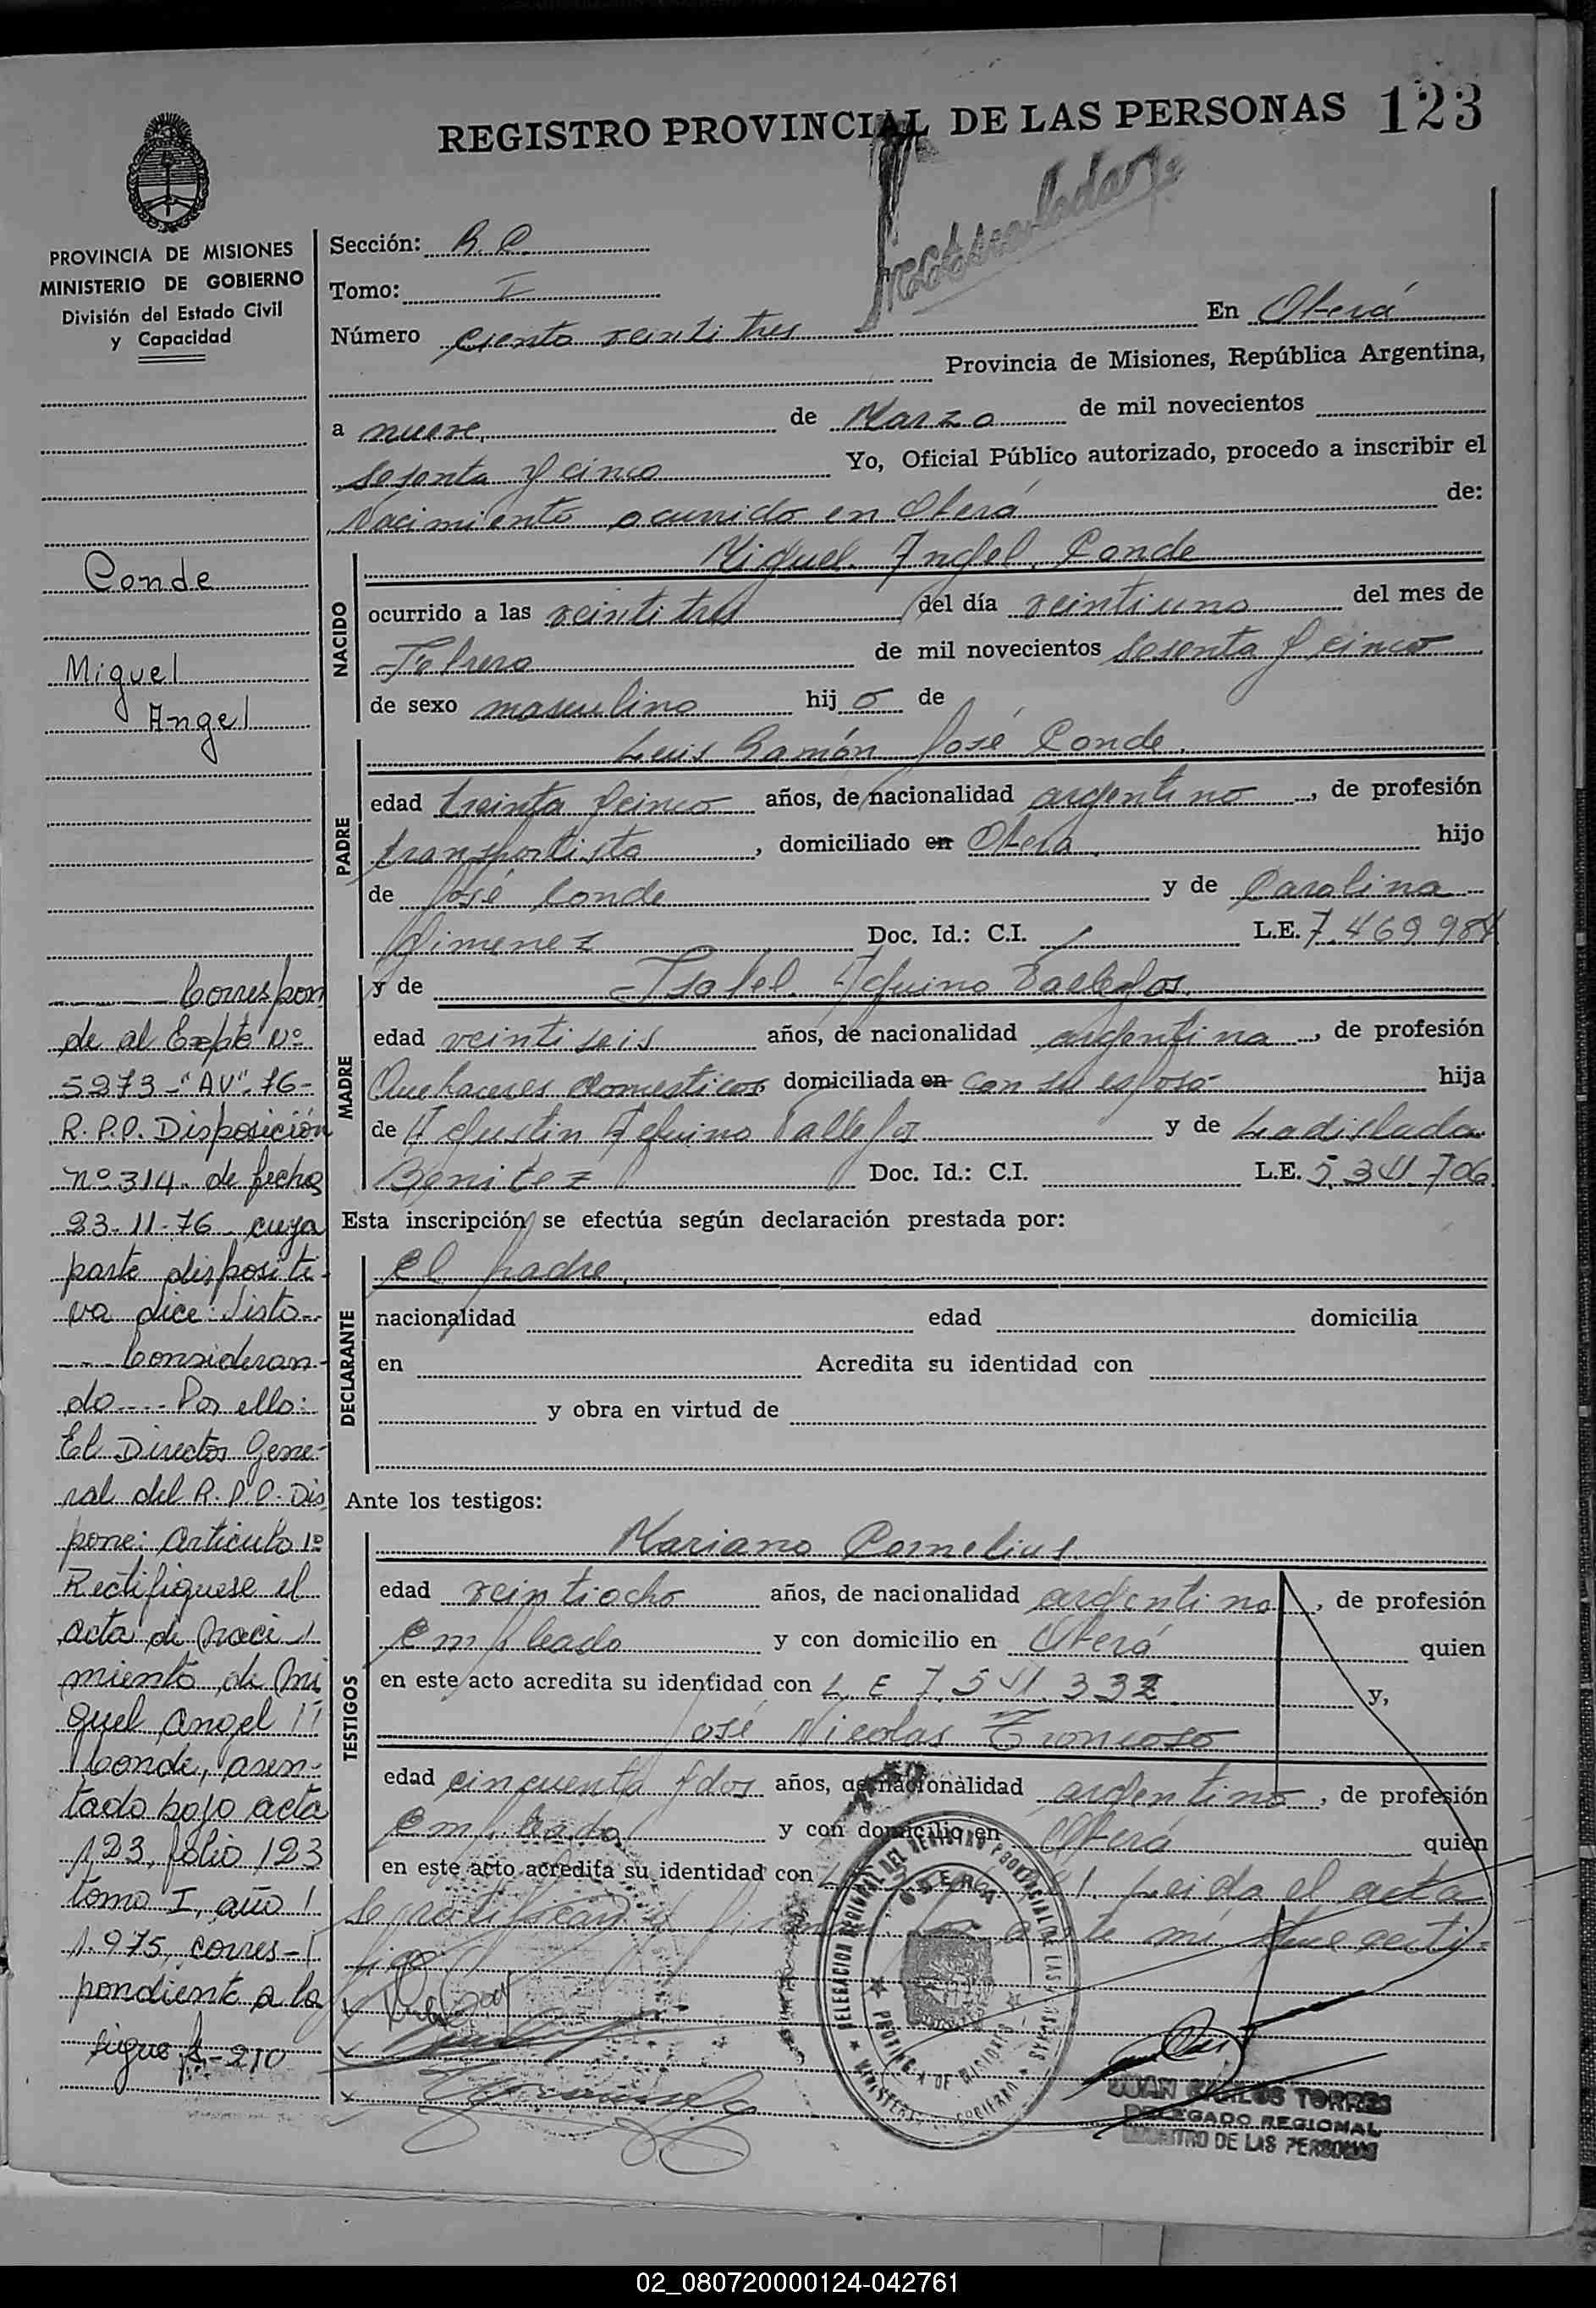 REGISTRO PROVINCIAL DE LAS PERSONAS 123
PROVINCIA DE MISIONES
MINISTERIO DE GOBIERNO
División del Estado Civil
y Capacidad
Conde
Miguel
Angel
Correspon
de al Expte Nº
5273-"AV"-76-
R.P.P. Disposición
nº 314 de fecha
23-11-76 cuya
parte dispositi-
va dice: Visto--
--- Consideran-
do---- Por ello:
El Director Gene-
ral del R.P.P. Dis
pone: Artículo 1º
Rectifiquese el
acta de naci
miento de Mi
guel Angel
Conde, asen-
tado bajo acta
123, folio 123
tomo I, año
1.975, corres-
pondiente a la
sigue f-210
Sección: R.P.
Tomo: I
Número ciento veintitres En Oberá
Provincia de Misiones, República Argentina,
a nueve, de Marzo de mil novecientos
sesenta y cinco Yo, Oficial Público autorizado, procedo a inscribir el
Nacimiento ocurrido en Oberá de:
NACIDO
Miguel Angel Conde
ocurrido a las veintitres del día veintiuno del mes de
Febrero de mil novecientos sesenta y cinco
de sexo masculino hijo de
PADRE
Luis Ramón José Conde.
edad treinta y cinco años, de nacionalidad argentino, de profesión
transportista, domiciliado en Oberá hijo
de José Conde y de Carolina
Gimenez Doc. Id.: C.I. / L.E. 7.469 984
MADRE
y de Isabel Aquino Vallejos.
edad veintiseis años, de nacionalidad argentina, de profesión
Quehaceres domesticos domiciliada en con su esposo hija
de Agustin Aquino Vallejos y de Ladislada
Benitez Doc. Id.: C.I. L.E. 5.341.706
Esta inscripción se efectúa según declaración prestada por:
DECLARANTE
el padre.
nacionalidad edad domicilia
en Acredita su identidad con
y obra en virtud de
Ante los testigos:
TESTIGOS
Mariano Cornelius
edad veintiocho años, de nacionalidad argentino, de profesión
empleado y con domicilio en Oberá quien
en este acto acredita su identidad con L E 7.541.332 y,
José Nicolas Troncoso
edad cincuenta y dos años, de nacionalidad argentino, de profesión
empleado y con domicilio en Oberá quien
en este acto acredita su identidad con Leida el acta
la ratifican y ante mi que certi-
fico
DELEGACION REGIONAL DEL REGISTRO PROVINCIAL DE LAS PERSONAS
OBERA
PROVINCIA DE MISIONES
MINISTERIO DE GOBIERNO
JUAN CARLOS TORRES
DELEGADO REGIONAL
REGISTRO DE LAS PERSONAS
02_080720000124-042761